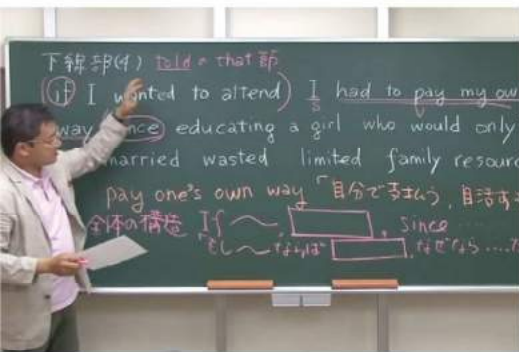 下線部(1) told の that 節
(if I wanted to attend) I had to pay my ow
way since educating a girl who would only
married wasted limited family resourc
pay one's own way 「自分で支払う, 自活す
S
全体の構造 If ～, , since
もし～ ならば , なぜなら....